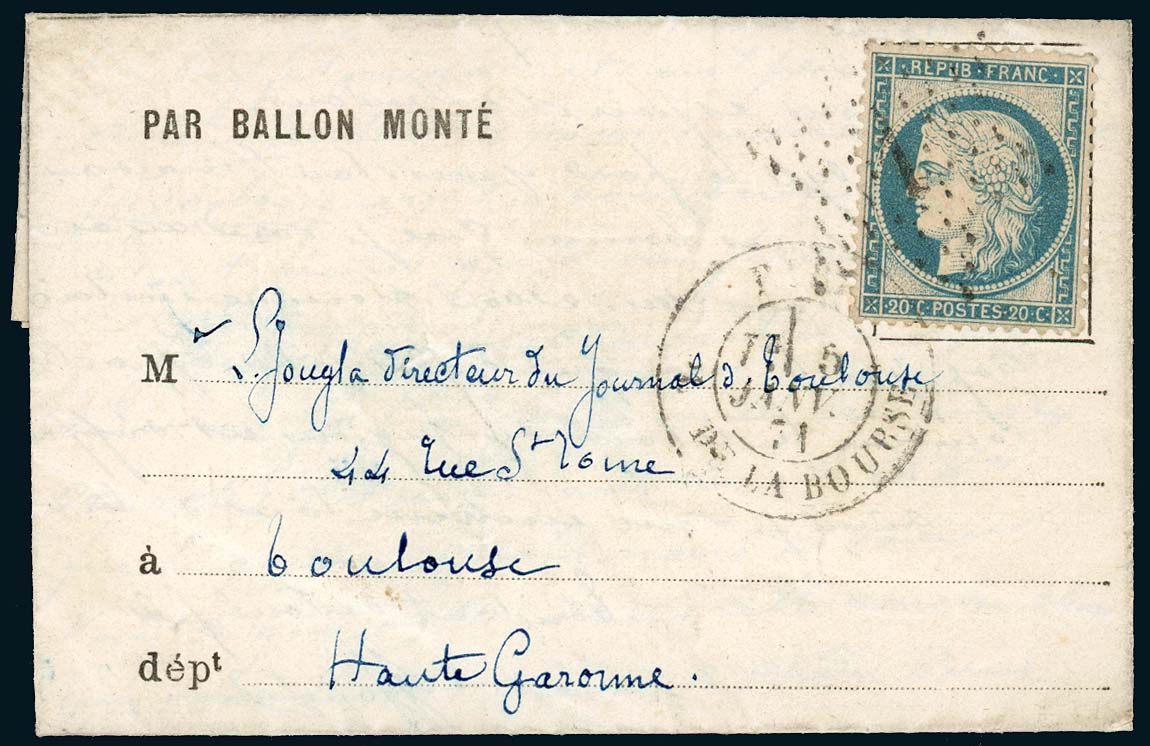 REPUB · FRANC ·
20 · C · POSTES · 20 · C ·
PAR BALLON MONTÉ
5
JANV.
71
DE LA BOURSE
Mr L. Jougla directeur du Journal d. Toulouse
44 rue St Rome
à Toulouse
dépt Haute Garonne.